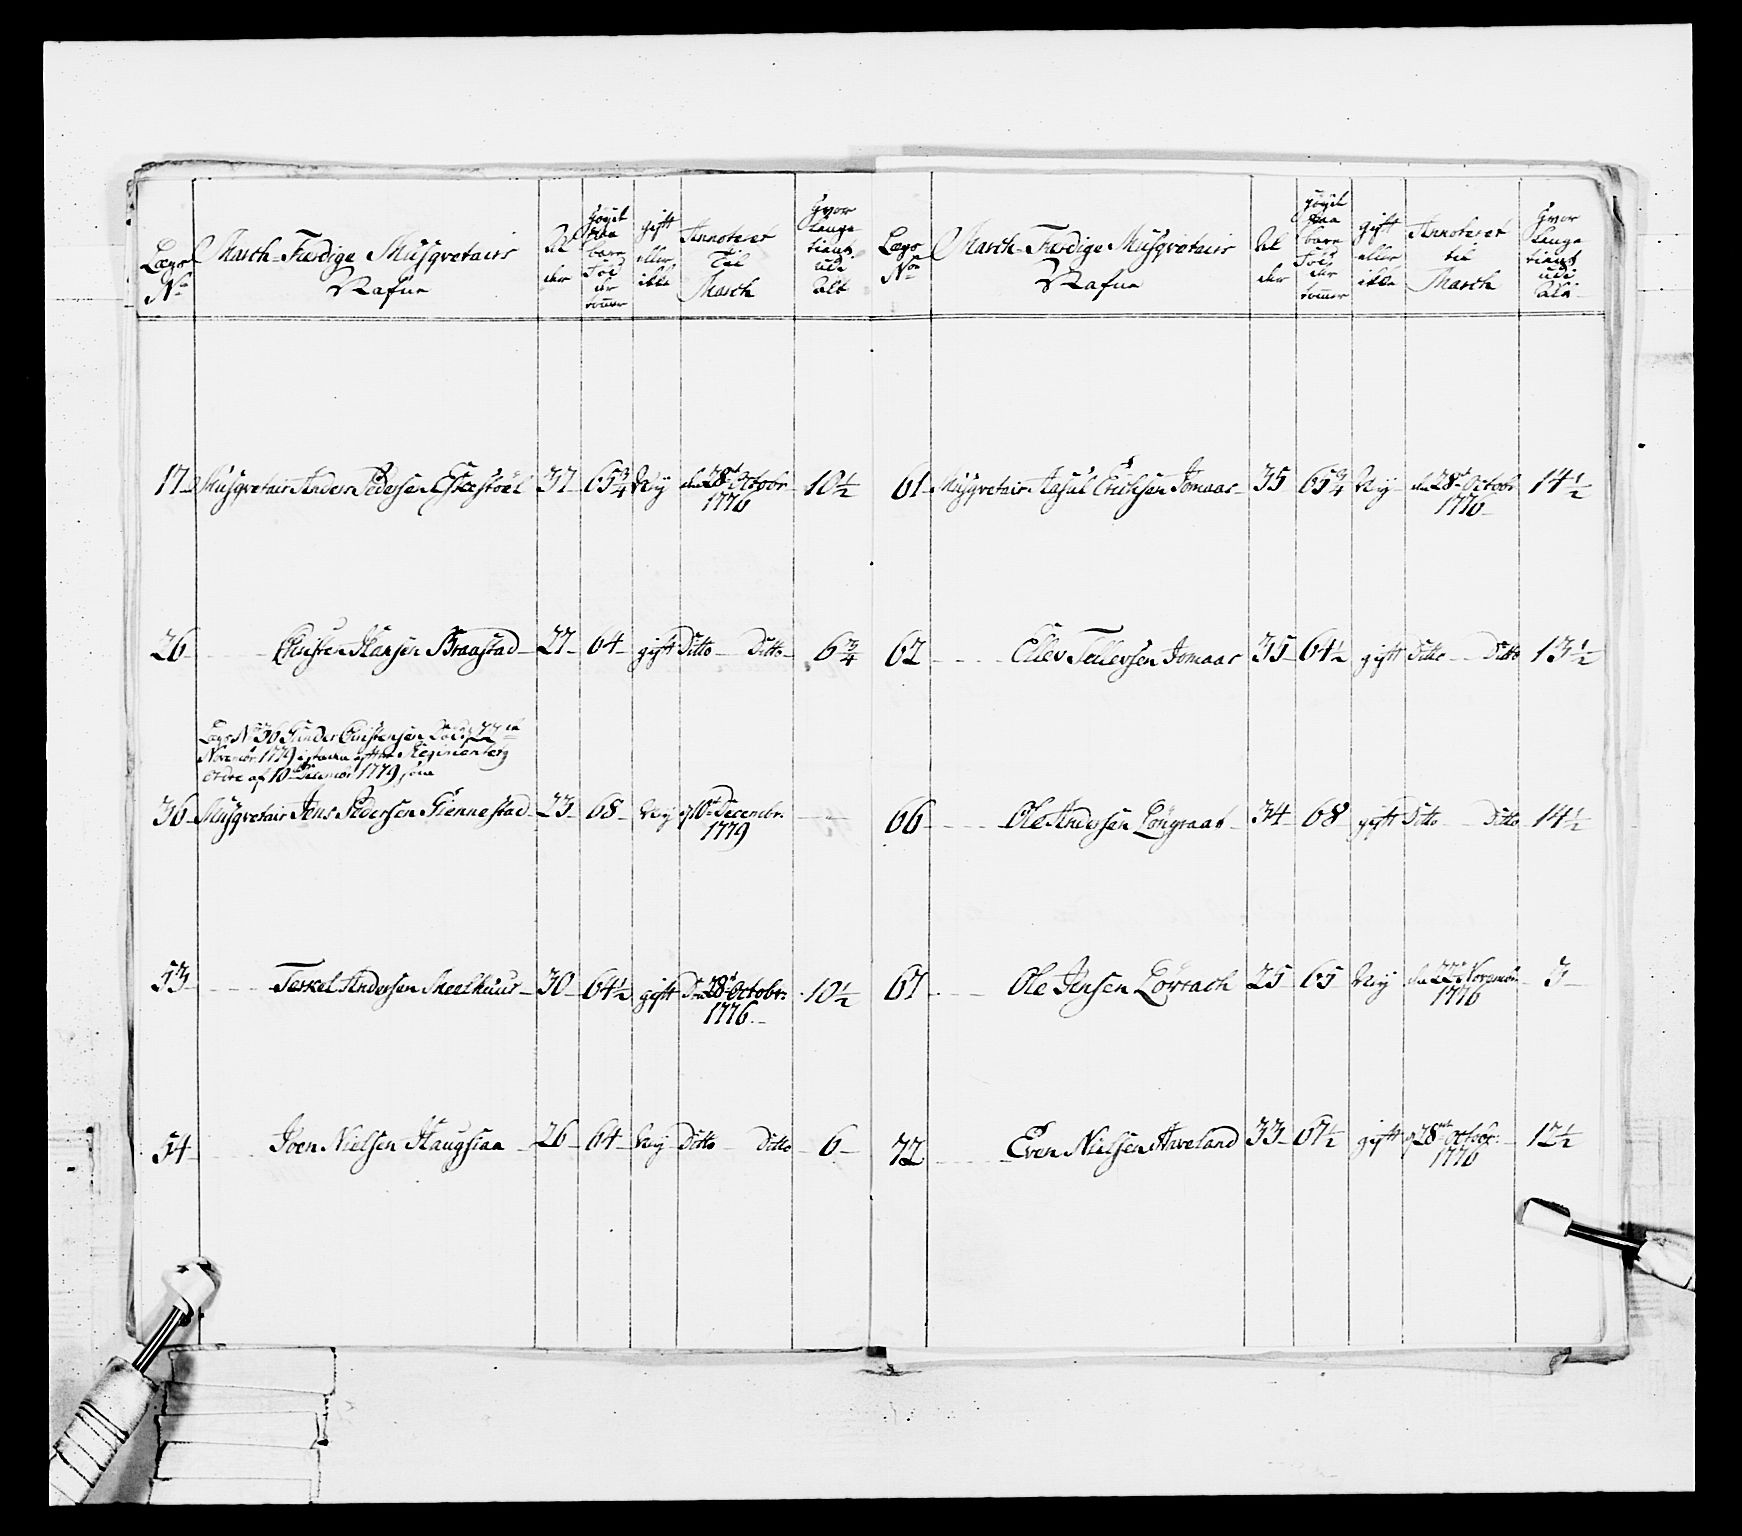 Lægs No
March-Færdige Musqvetairs Nafne
Al der
høyst paa bare Fod ær tomer
gift eller ikke
Annoteret Til March
Hvor Længe tient udi Alt
17 Musqvetair Anders Pedersen 37 65 3/4 Nej den 28de Octobr 1776 10 1/2
26 Christen Hansen Braastad 27 64 gift Ditto Ditto 6 3/4
Lægs No 36 Gunder Christensen Død 27de
Novembr: 1779 i stæden efter Regimentets
Ordre af 10de Decembr 1779, som
36 Musqvetair Jens Pedersen Giennestad 23 68 Nej 10de Decembr: 1779
53 Terkel Andersen 30 64 1/2 gift Den 28de Octobr: 1776 10 1/2
54 Joen Nielsen Haugstaa 26 64 Nej Ditto Ditto 6
Lægs No
March-Færdige Musqvetairs Nafne
Al der
høyst paa bare Fod ær tomer
gift eller ikke
Annoteret til March
Hvor Længe tient udi Alt
61 Musqvetair Aasul Erichsen Jomaas 35 65 3/4 Nej den 28de Octobr 1776 14 1/2
62 Ellev Tellevsen Jomaas 35 64 1/2 gift Ditto Ditto 13 1/2
66 Ole Andersen 34 68 gift Ditto Ditto 14 1/2
67 Ole Jensen 25 65 Nej den 22de Novembr 1776 3
72 Even Nielsen Haveland 33 67 1/2 gift 28de Octobr: 1776 12 1/2